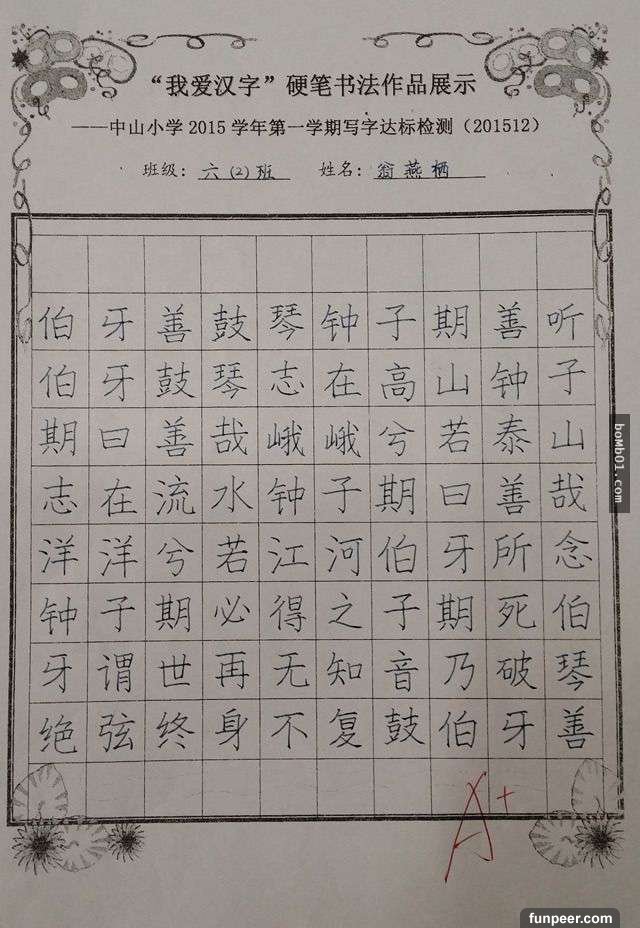 “我爱汉字”硬笔书法作品展示
——中山小学2015学年第一学期写字达标检测（201512）
班级：六(2)班 姓名：翁燕栖
伯牙善鼓琴钟子期善听
伯牙鼓琴志在高山钟子
期曰善哉峨峨兮若泰山
志在流水钟子期曰善哉
洋洋兮若江河伯牙所念
钟子期必得之子期死伯
牙谓世再无知音乃破琴
绝弦终身不复鼓伯牙善
A+
bomb01.com
funpeer.com